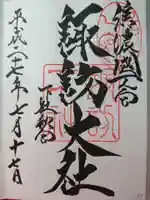 信濃國一宮
諏訪大社
下社秋宮
平成廿七年七月十七日